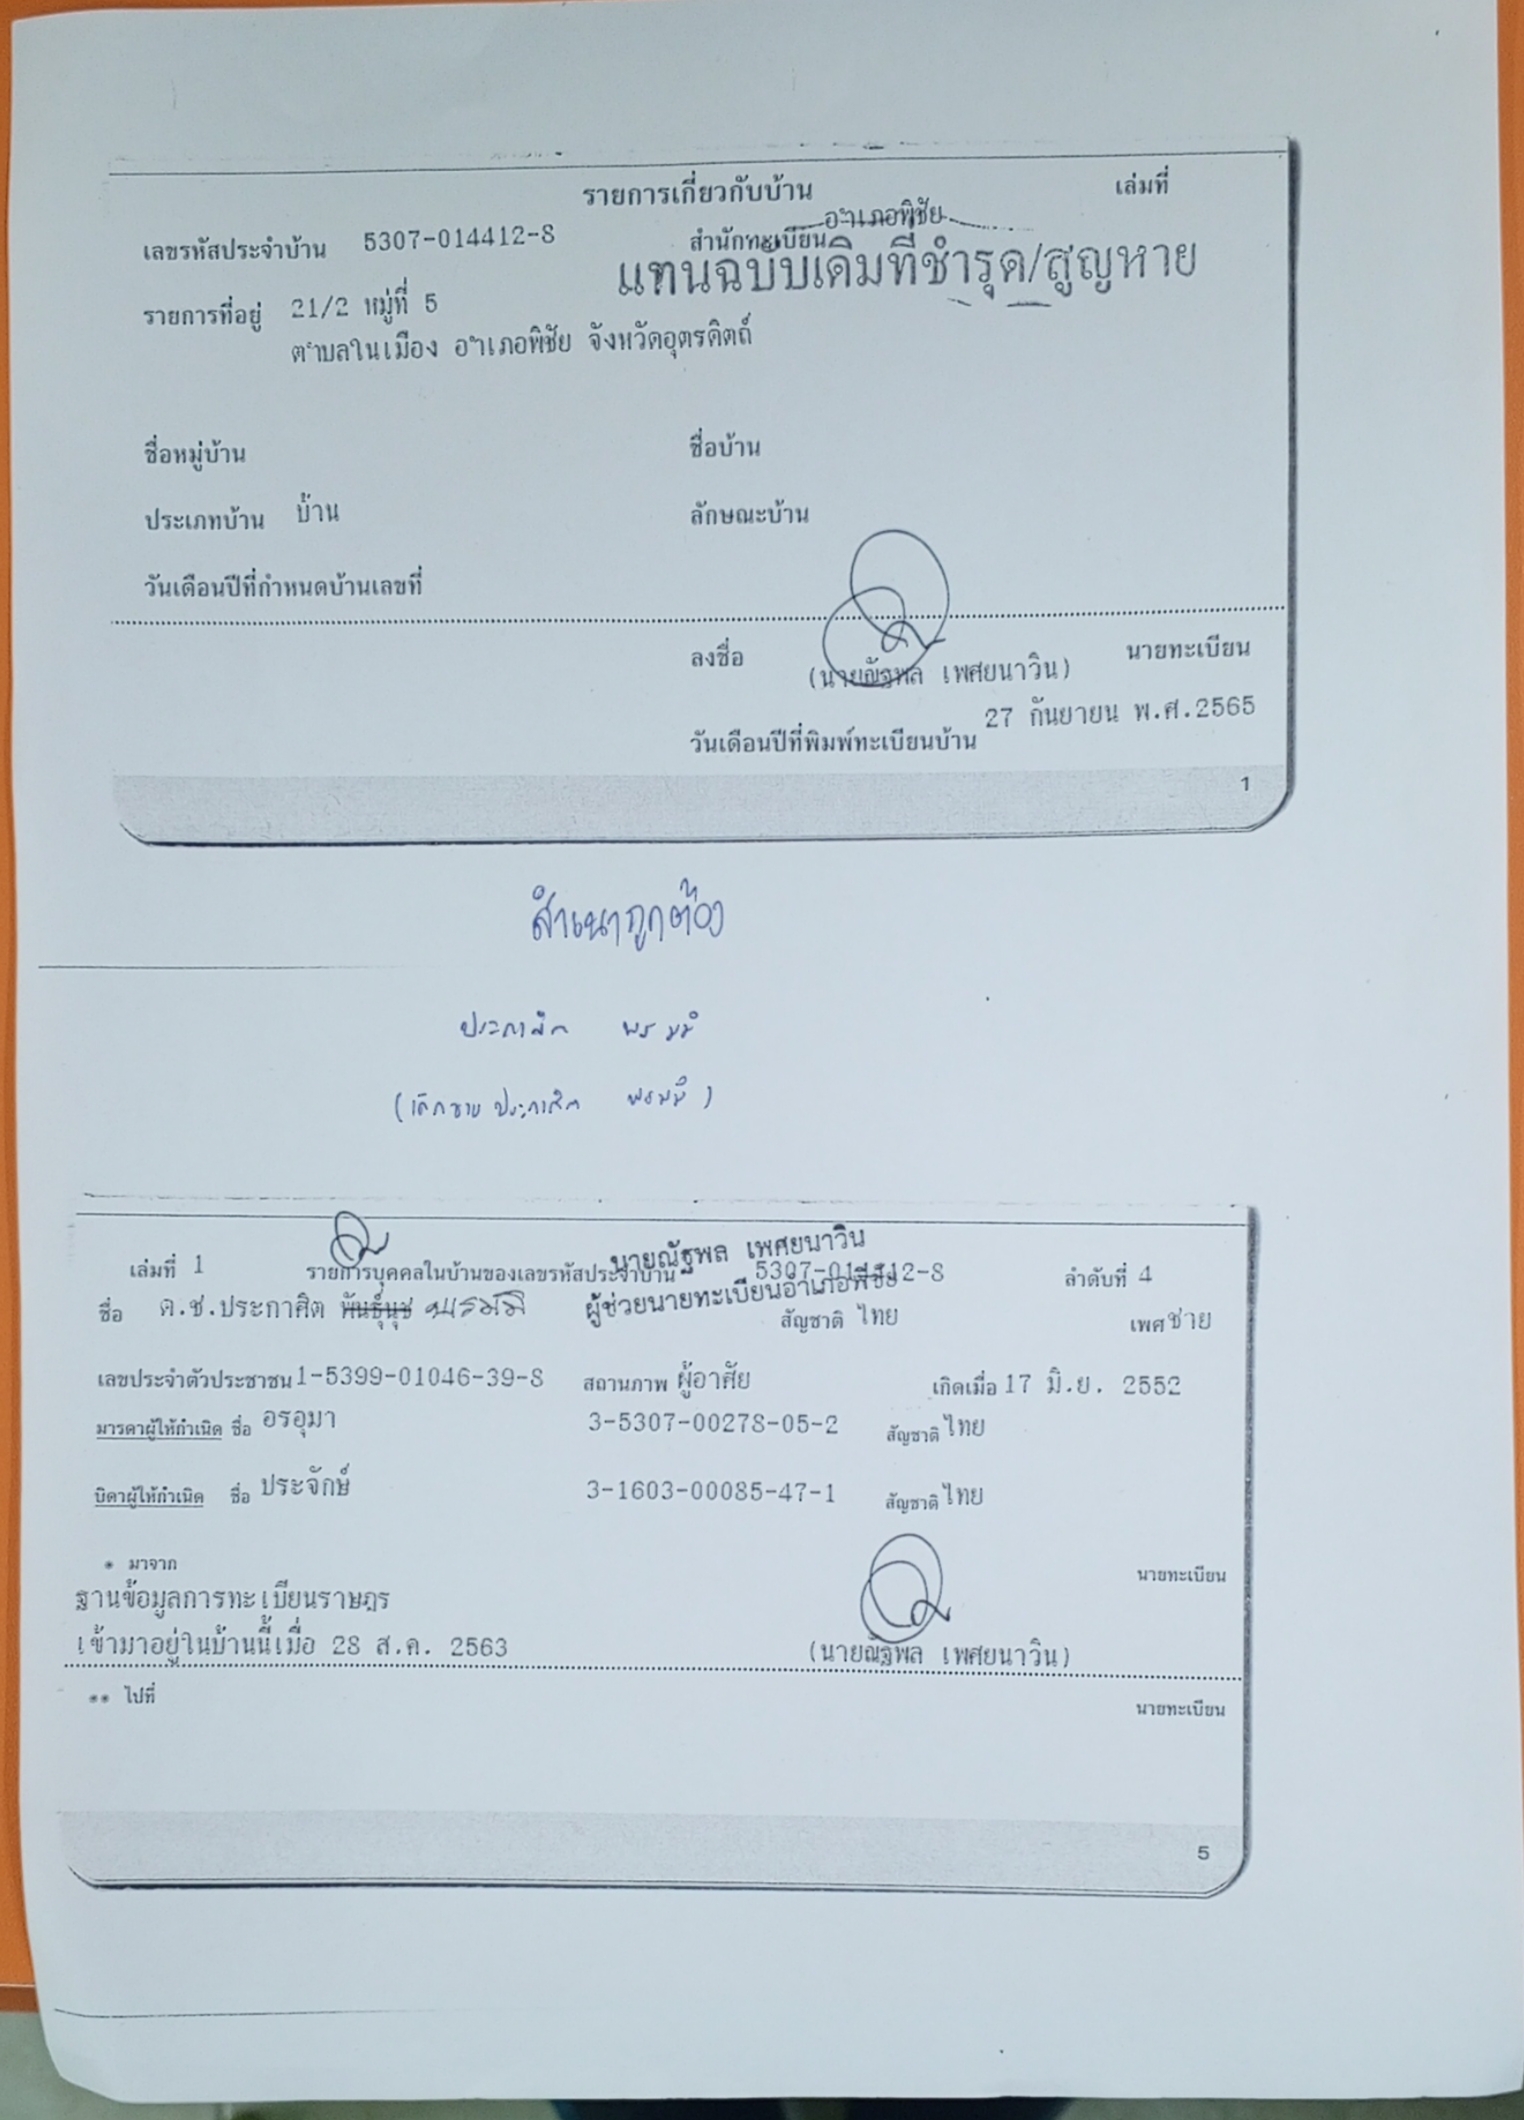 รายการเกี่ยวกับบ้าน เล่มที่
เลขรหัสประจำบ้าน 5307-014412-8 สำนักทะเบียน อำเภอพิชัย
แทนฉบับเดิมที่ชำรุด/สูญหาย
รายการที่อยู่ 21/2 หมู่ที่ 5
ตำบลในเมือง อำเภอพิชัย จังหวัดอุตรดิตถ์
ชื่อหมู่บ้าน ชื่อบ้าน
ประเภทบ้าน บ้าน ลักษณะบ้าน
วันเดือนปีที่กำหนดบ้านเลขที่
ลงชื่อ นายทะเบียน
(นายณัฐพล เพศยนาวิน)
วันเดือนปีที่พิมพ์ทะเบียนบ้าน 27 กันยายน พ.ศ.2565
1
สำเนาถูกต้อง
ประกาศิต พรมมี
(เด็กชาย ประกาศิต พรมมี)
นายณัฐพล เพศยนาวิน
เล่มที่ 1 รายการบุคคลในบ้านของเลขรหัสประจำบ้าน 5307-014412-8 ลำดับที่ 4
ผู้ช่วยนายทะเบียนอำเภอพิชัย
ชื่อ ด.ช.ประกาศิต พันธุ์นุช พรมมี สัญชาติ ไทย เพศ ชาย
เลขประจำตัวประชาชน 1-5399-01046-39-8 สถานภาพ ผู้อาศัย เกิดเมื่อ 17 มิ.ย. 2552
มารดาผู้ให้กำเนิด ชื่อ อรอุมา 3-5307-00278-05-2 สัญชาติ ไทย
บิดาผู้ให้กำเนิด ชื่อ ประจักษ์ 3-1603-00085-47-1 สัญชาติ ไทย
* มาจาก นายทะเบียน
ฐานข้อมูลการทะเบียนราษฎร
เข้ามาอยู่ในบ้านนี้เมื่อ 28 ส.ค. 2563 (นายณัฐพล เพศยนาวิน)
** ไปที่ นายทะเบียน
5